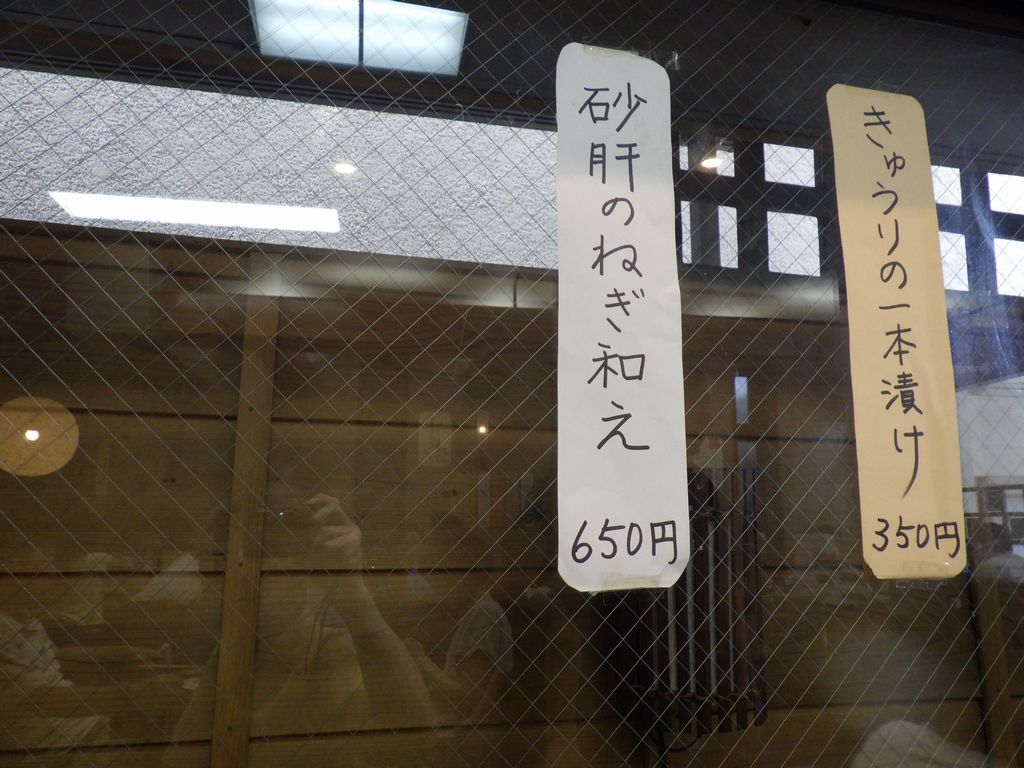 きゅうりの一本漬け
350円
砂肝のねぎ和え
650円